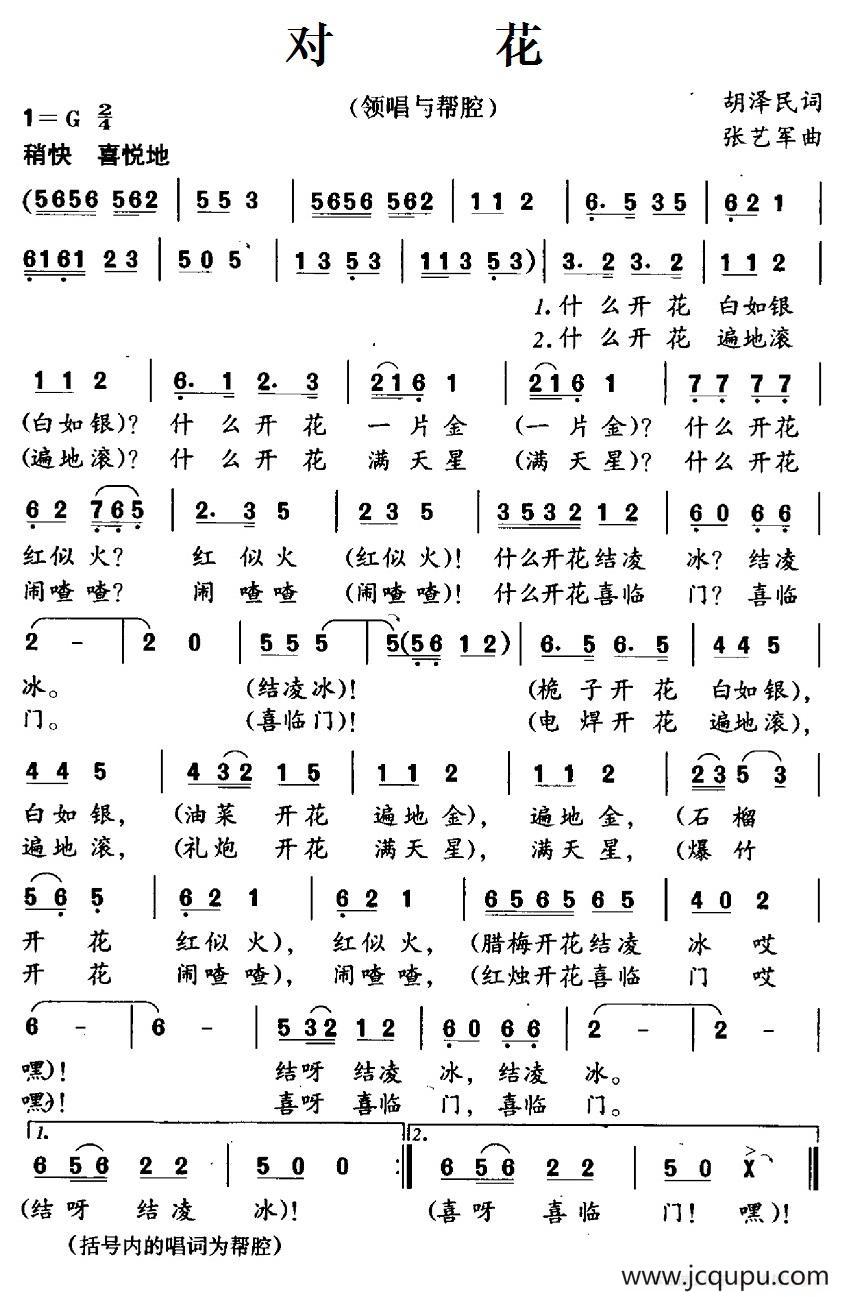 对 花
(领唱与帮腔)
胡泽民词
张艺军曲
1=G 2/4
稍快 喜悦地
(5656 562 | 553 | 5656 562 | 112 | 6. 5 35 | 621 |
6161 23 | 505 | 13 53 | 113 53) | 3. 2 3. 2 | 112 |
1.什么开花 白如银
2.什么开花 遍地滚
112 | 6. 1 2. 3 | 2161 | 2161 | 77 77 |
(白如银)? 什么开花 一片金 (一片金)? 什么开花
(遍地滚)? 什么开花 满天星 (满天星)? 什么开花
62 765 | 2. 3 5 | 235 | 3532 12 | 60 66 |
红似火? 红似火 (红似火)! 什么开花结凌 冰? 结凌
闹喳喳? 闹喳喳 (闹喳喳)! 什么开花喜临 门? 喜临
2 - | 2 0 | 55 5 | 5(56 12) | 6. 5 6. 5 | 445 |
冰。 (结凌冰)! (桅子开花 白如银),
门。 (喜临门)! (电焊开花 遍地滚),
445 | 432 15 | 112 | 112 | 235 3 |
白如银, (油菜 开花 遍地金), 遍地金, (石榴
遍地滚, (礼炮 开花 满天星), 满天星, (爆竹
56 5 | 621 | 621 | 6565 65 | 402 |
开花 红似火), 红似火, (腊梅开花结凌 冰 哎
开花 闹喳喳), 闹喳喳, (红烛开花喜临 门 哎
6 - | 6 - | 532 12 | 60 66 | 2 - | 2 - |
嘿)! 结呀 结凌 冰, 结凌 冰。
嘿)! 喜呀 喜临 门, 喜临 门。
1. 2.
656 22 | 500 :| 656 22 | 50 X ||
(结呀 结凌 冰)! (喜呀 喜临 门! 嘿)!
(括号内的唱词为帮腔)
www.jcqupu.com